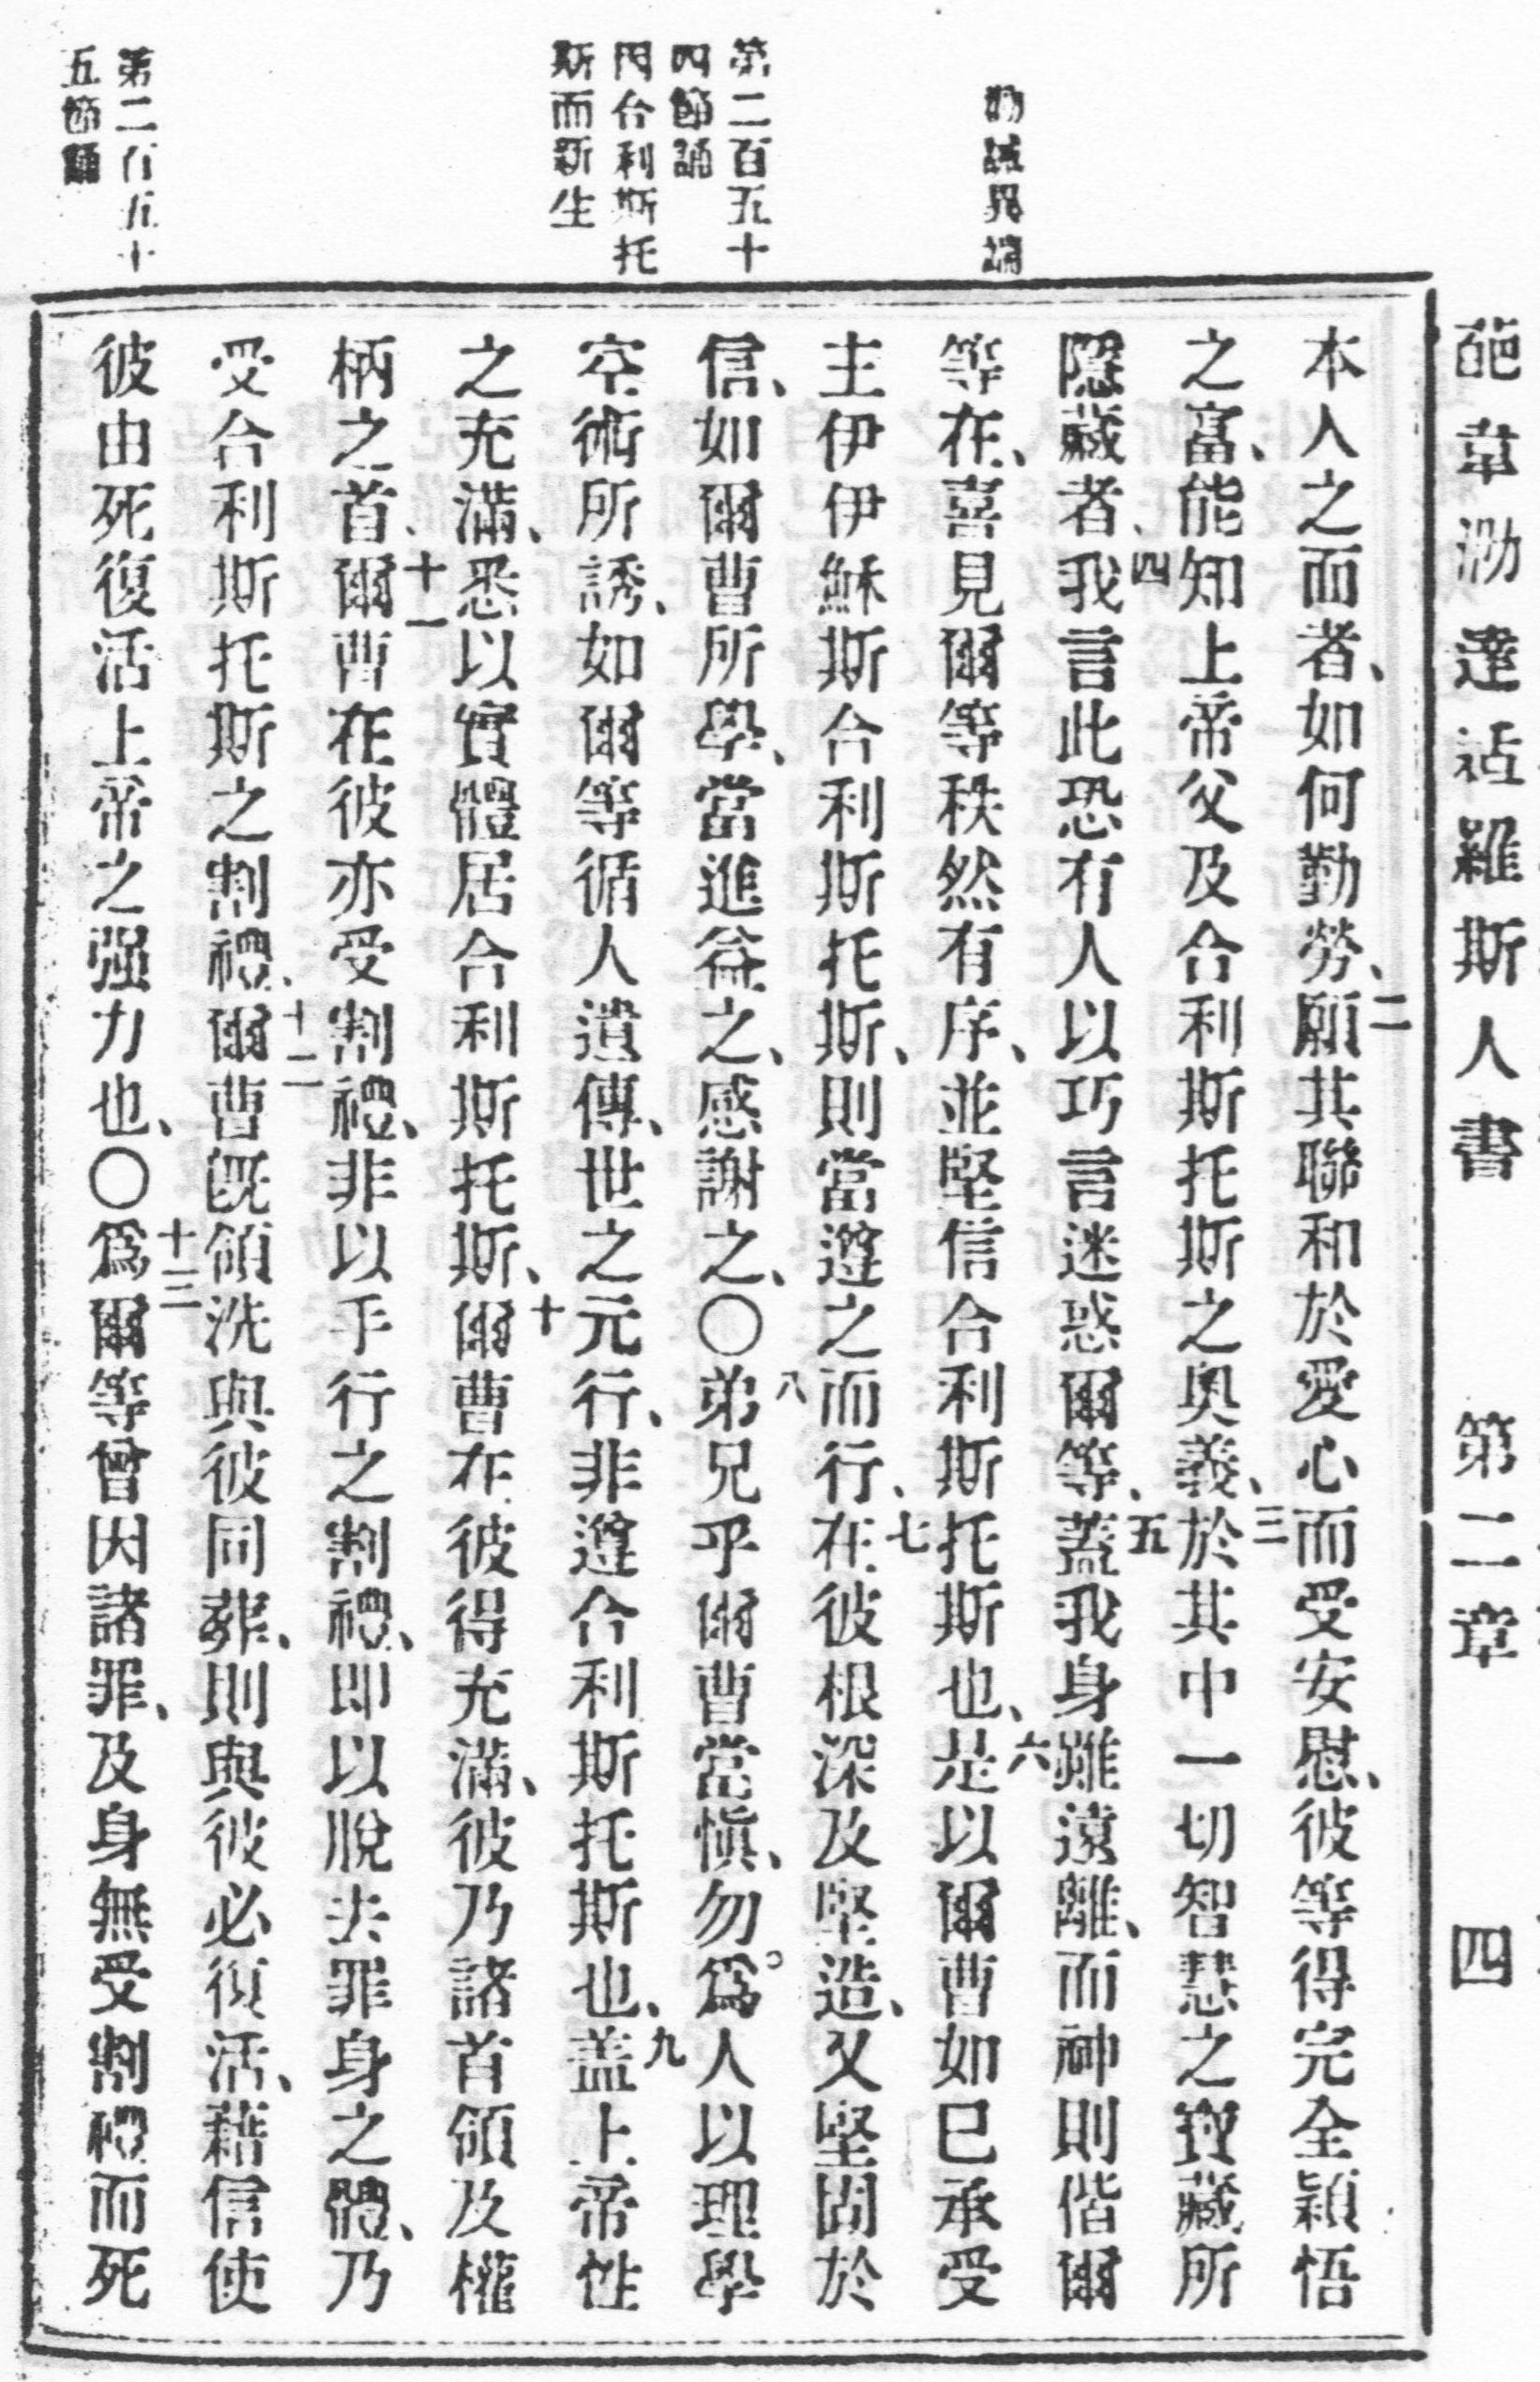 葩韋泐達适羅斯人書 第二章 四
本人之而者、如何勤勞、二願其聯和於愛心而受安慰、彼等得完全穎悟
之富、能知上帝父及合利斯托斯之奧義、三於其中一切智慧之寶藏所
隱藏者、四我言此恐有人以巧言迷惑爾等、五蓋我身雖遠離、而神則偕爾
等在、喜見爾等秩然有序、並堅信合利斯托斯也、六是以爾曹如已承受
主伊伊穌斯合利斯托斯、則當遵之而行、七在彼根深及堅造、又堅固於
信、如爾曹所學、當進益之、感謝之、〇八弟兄乎爾曹當愼、勿爲人以理學
空術所誘、如爾等循人遺傳、世之元行、非遵合利斯托斯也、九盖上帝性
之充滿、悉以實體居合利斯托斯、十爾曹在彼得充滿、彼乃諸首領及權
柄之首、十一爾曹在彼亦受割禮、非以手行之割禮、即以脫去罪身之體、乃
受合利斯托斯之割禮、十二爾曹旣領洗與彼同葬、則與彼必復活、藉信使
彼由死復活上帝之强力也、〇十三爲爾等曾因諸罪、及身無受割禮而死
異端
第二百五十
四節誦
因合利斯托
斯而新生
第二百五十
五節誦